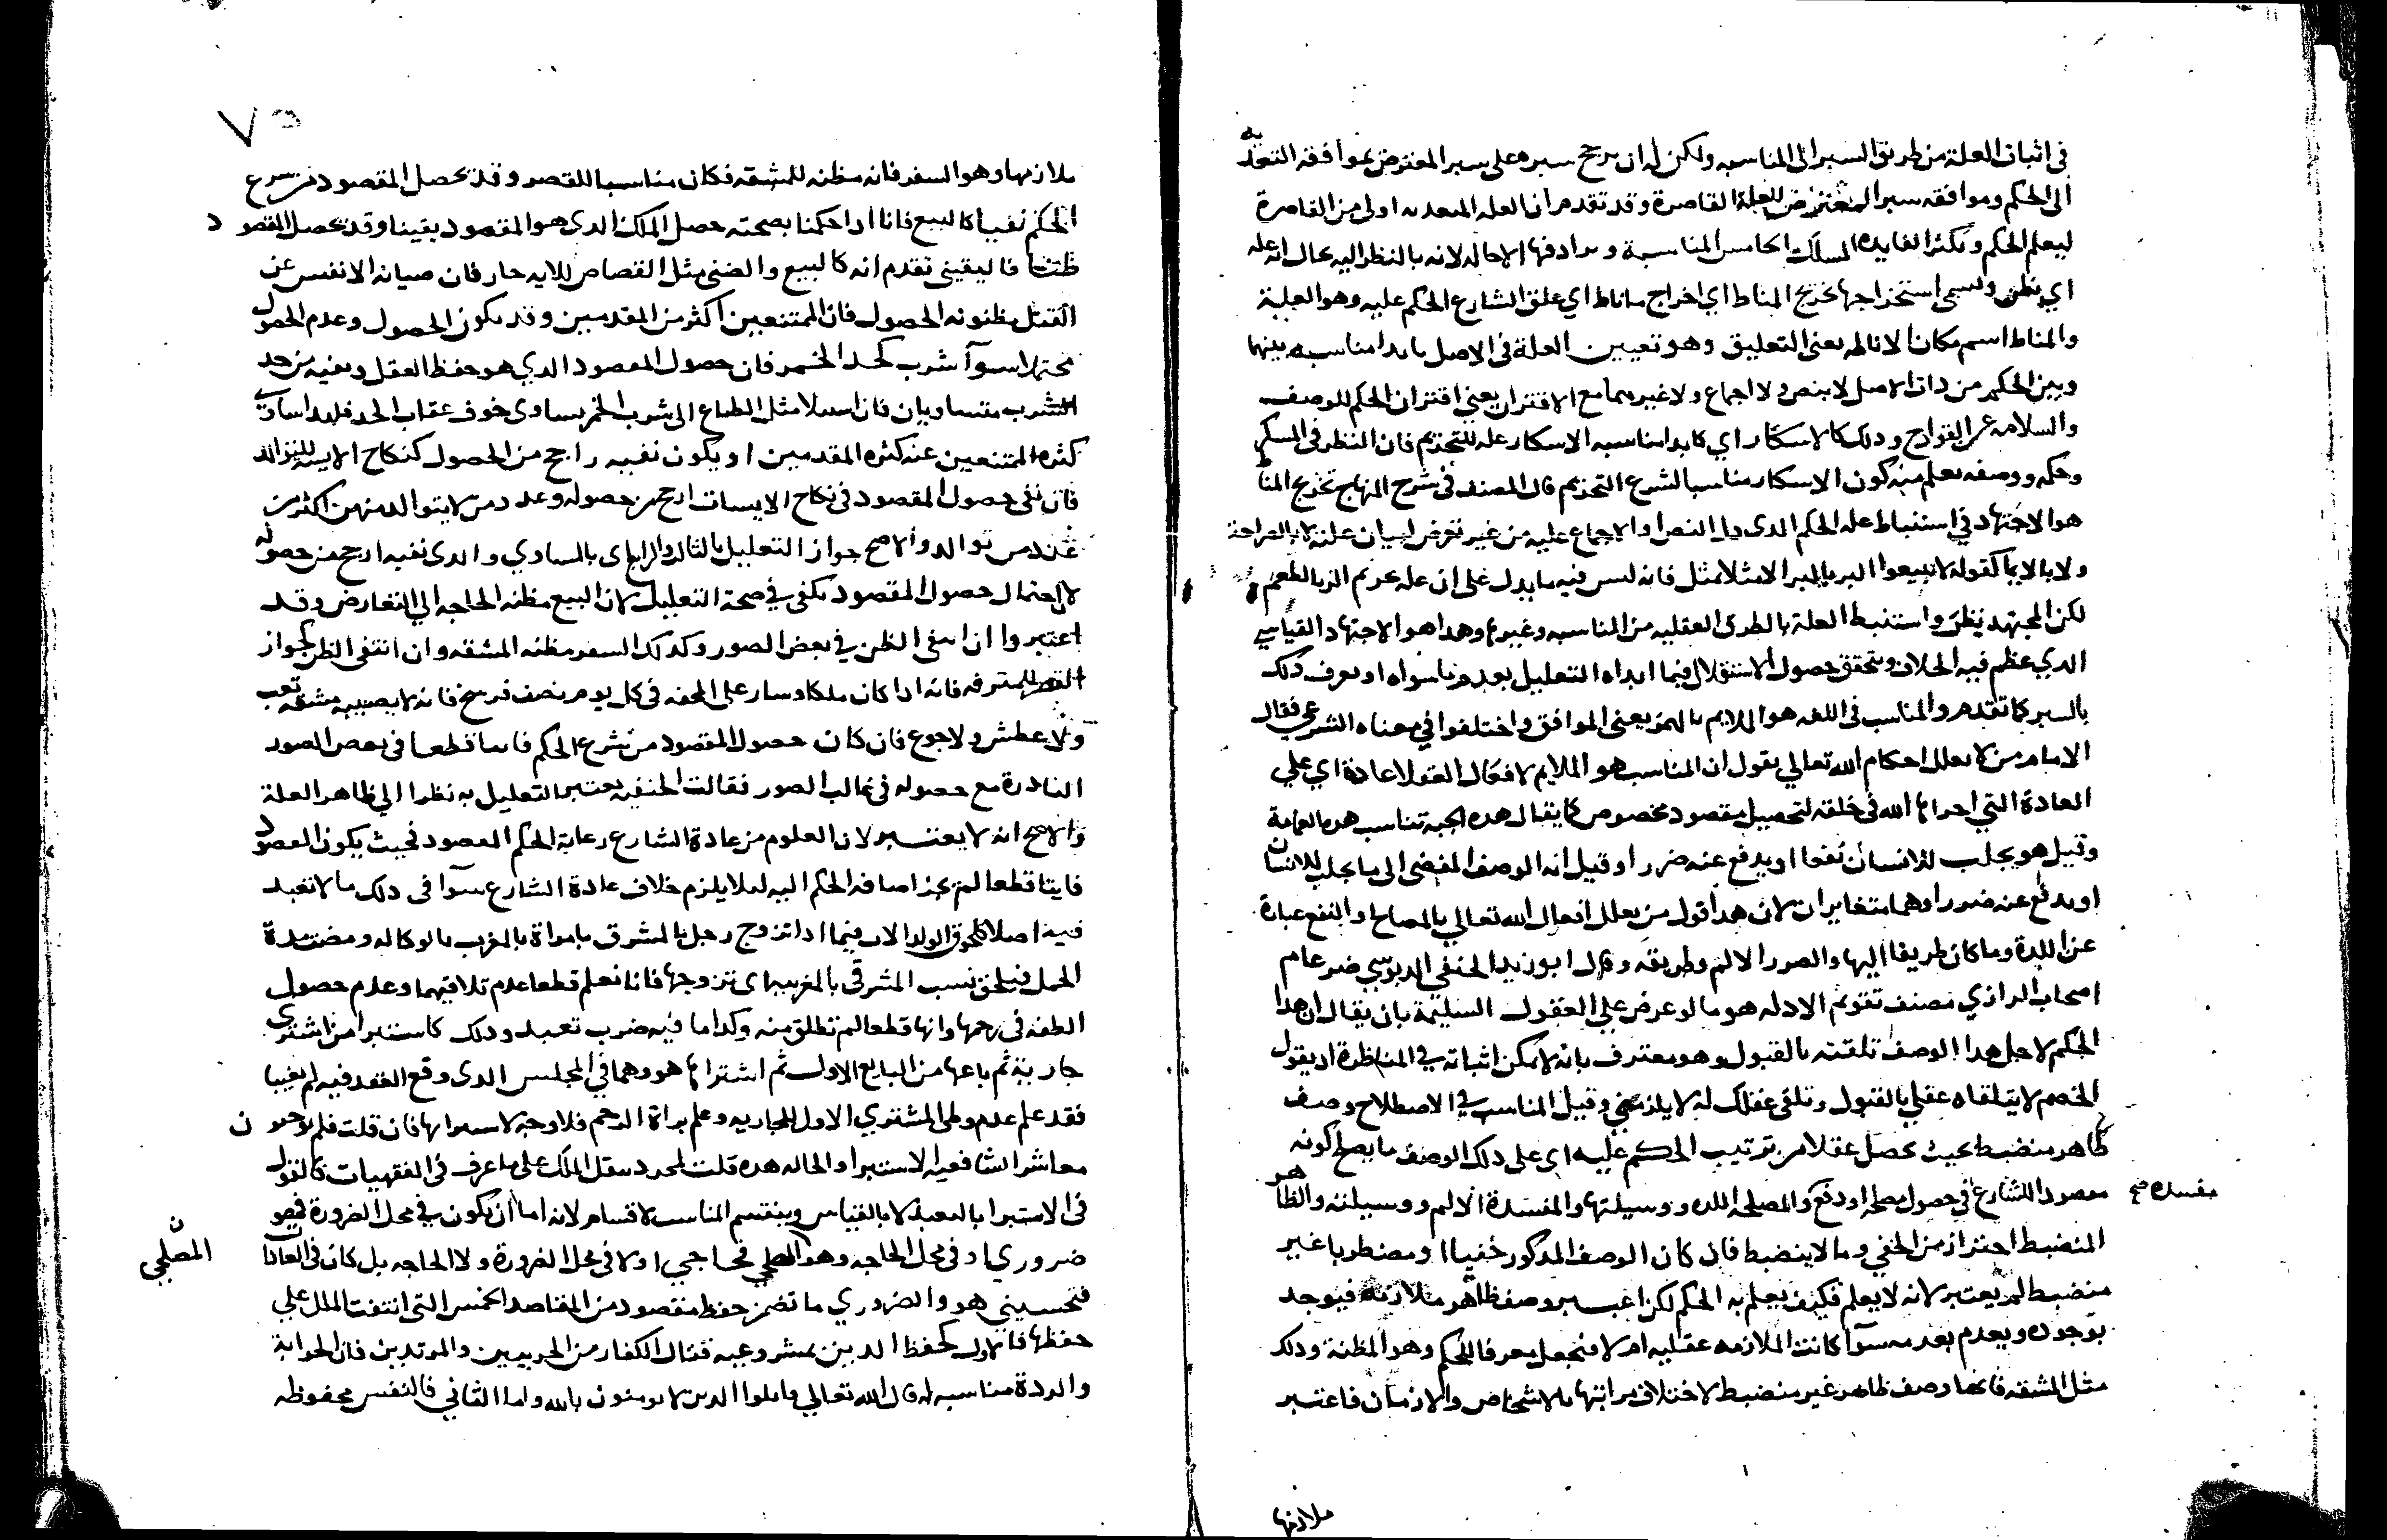 في اثبات العلة من طريق السبر الى المناسبه ولكن له ان يرجح سبره على سبر المعترض بموافقه التعديه
الى الحكم وموافقه سبر المعترض للعلة القاصرة وقد تقدم ان العله المتعديه اولى من القاصرة
ليعلم الحكم وتكثر الفايده المسلك الخامس المناسبة ويرادفها الاخاله لانه بالنظر اليه يخال انه عله
اي يظن ويسمى استخراجها تخريج المناط اي اخراج ماناط اي علق الشارع الحكم عليه وهو العلية
والمناط اسم مكان الاناطه يعني التعليق وهو تعيين العلة في الاصل بابدا مناسبه بينها
وبين الحكم من ذات الاصل لا بنص ولا اجماع ولا غيرهما مع الاقتران يعني اقتران الحكم للوصف
والسلامه عن القوادح وذلك كالاسكار اي كابدا مناسبه الاسكار عله للتحريم فان النظر في المسكر
وحكمه ووصفه يعلم منه كون الاسكار مناسبا لشرع التحريم قال المصنف في شرح المنهاج تخريج المناط
هو الاجتهاد في استنباط علة الحكم الذي دل النص او الاجماع عليه من غير تعرض لبيان علته لا بالصراحة
ولا بالايما كقوله لا تبيعوا البر بالبر الا مثلا بمثل فانه ليس فيه ما يدل على ان علة تحريم الربا الطعم
لكن المجتهد نظر واستنبط العلة بالطرق العقليه من المناسبه وغيرها وهذا هو الاجتهاد القياسي
الذي عظم فيه الخلاف ويتحقق حصول الاستقلال فيما ابداه التعليل بعدم ماسواه او يعرف ذلك
بالسبر كما تقدم والمناسب في اللغه هو الملايم بالهمز يعني الموافق واختلفوا في معناه الشرعي فقال
الامام من لا يعلل احكام الله تعالى يقول ان المناسب هو الملايم لافعال العقلا عادة اي على
العادة التي اجراها الله في خلقه لتحصيل مقصود مخصوص كما يقال هذه الجبة تناسب هذه العمامة
وقيل هو يجلب للانسان نفعا او يدفع عنه ضررا وقيل انه الوصف المفضي الى ما يجلب للانسان
او يدفع عنه ضررا وهما متغايران لان هذا قول من يعلل افعال الله تعالى بالمصالح والنفع عبارة
عن اللذة وما كان طريقا اليها والضرر الالم وطريقه وقال ابو زيد الحنفي الدبوسي
اصحاب الرازي مصنف تقويم الادله هو ما لو عرض على العقول السليمة بان يقال ان هذا
الحكم لاجل هذا الوصف تلقته بالقبول وهو معترف بانه لا يمكن اثباته في المناظرة اذ يقول
الخصم لا يتلقاه عقلي بالقبول وتلقي عقلك له لا يلزمني وقيل المناسب في الاصطلاح وصف
ظاهر منضبط بحيث يحصل عقلا من ترتيب الحكم عليه اي على ذلك الوصف ما يصلح كونه
مقصودا للشارع في حصول مصلحة او دفع والمصلحة اللذه ووسيلتها والمفسدة الالم ووسيلته والظاهر
مفسده صح
المنضبط احتراز من الخفي وما لا ينضبط فان كان الوصف المذكور خفيا او مضطربا غير
منضبط لم يعتبر لانه لا يعلم فكيف يعلم به الحكم لكن اعتبر وصف ظاهر ملازمه فيوجد
بوجوده ويعدم بعدمه سوآ كانت الملازمه عقليه ام لا فيجعل معرفا للحكم وهو المظنة وذلك
مثل المشقه فانها وصف ظاهر غير منضبط لاختلاف مراتبها بالاشخاص والازمان فاعتبر
ملازمها
٧٥
ملازمها وهو السفر فانه مظنه للمشقه فكان مناسبا للقصر وقد يحصل المقصود من شرع
الحكم نفيا كالبيع فانا اذا حكمنا بصحته حصل الملك الذي هو المقصود يقينا وقد يحصل المقصود
ظنا فاليقيني تقدم انه كالبيع والضني مثل القصاص فان صيانه الانفس عن
القتل مظنونه الحصول فان الممتنعين اكثر من المقدمين وقد يكون الحصول وعدم الحصول
محتملا سوآ شرب كحد الخمر فان حصول المقصود الذي هو حفظ العقل ونفيه من حد
الشرب متساويان فان الطباع الى شرب الخمر يساوي خوف عقاب الحد
كثره الممتنعين عنه كثره المقدمين او يكون نفيه راجح من الحصول كنكاح الايسه للتوالد
فان نفي حصول المقصود في نكاح الايسات ارجح من حصوله وعدد من لا يتوالد منهن اكثر من
عدد من توالد والاصح جواز التعليل بالثالث والرابع اي بالمساوي والذي نفيه ارجح من حصوله
لان احتمال حصول المقصود يكفي في صحة التعليل لان البيع مظنه الحاجه الى التعارض وقد
اعتبروا ان انتفى الظن في بعض الصور وكذلك السفر مظنه المشقه وان انتفى الظن كجواز
القصر للمترفه فانه اذا كان ملكا وسار على المحفه في كل يوم نصف فرسخ فانه لا يصيبه مشقه تعب
ولا عطش ولا جوع فان كان حصول المقصود من شرع الحكم فايتا قطعا في بعض الصور
النادرة مع حصوله في غالب الصور فقالت الحنفيه يعتبر التعليل به نظرا الى ظاهر العلة
والاصح انه لا يعتبر لان المعلوم من عادة الشارع رعاية الحكم المقصود فحيث يكون المقصود
فايتا قطعا لم يجز اضافه الحكم اليه لئلا يلزم خلاف عادة الشارع سوآ في ذلك ما لا تعبد
فيه اصلا كلحوق الولد الاب فيما اذا تزوج رجل بالمشرق بامراة بالمغرب بالوكاله ومضت مدة
الحمل فيلحق نسب المشرقي بالمغربيه اي تزوجها فانا نعلم قطعا عدم تلاقيهما وعدم حصول
النطفه في رحمها وانها قطعا لم تطلق منه وكذا ما فيه ضرب تعبد وذلك كاستبرا من اشترى
جارية ثم باعها من البايع الاول ثم اشتراها هو وهما في المجلس الذي وقع العقد فيه لم يغيبا
فقد علم عدم وطي المشتري الاول للجاريه وعلم براة الرحم فلا وجه لاستبرايها فان قلت فلم توجبون
معاشر الشافعيه الاستبرا والحاله هذه قلت لتجدد نقل الملك على ما عرف في الفقهيات كالقول
في الاستبرا بالتعبد لا بالقياس وينقسم المناسب لاقسام لانه اما ان يكون في محل الضرورة فهو
ضروري او في محل الحاجه وهو المصلحي فحاجي او لا في محل الضرورة ولا الحاجه بل كان في العادات
المصلحي
فتحسيني هو والضروري ما تضمن حفظ مقصود من المقاصد الخمس التي اتفقت الملل على
حفظها فالاول كحفظ الدين بمشروعيه قتال الكفار من الحربيين والمرتدين فان الحرابة
والردة مناسبه له قال الله تعالى قاتلوا الذين لا يومنون بالله واما الثاني فالنفس محفوظه